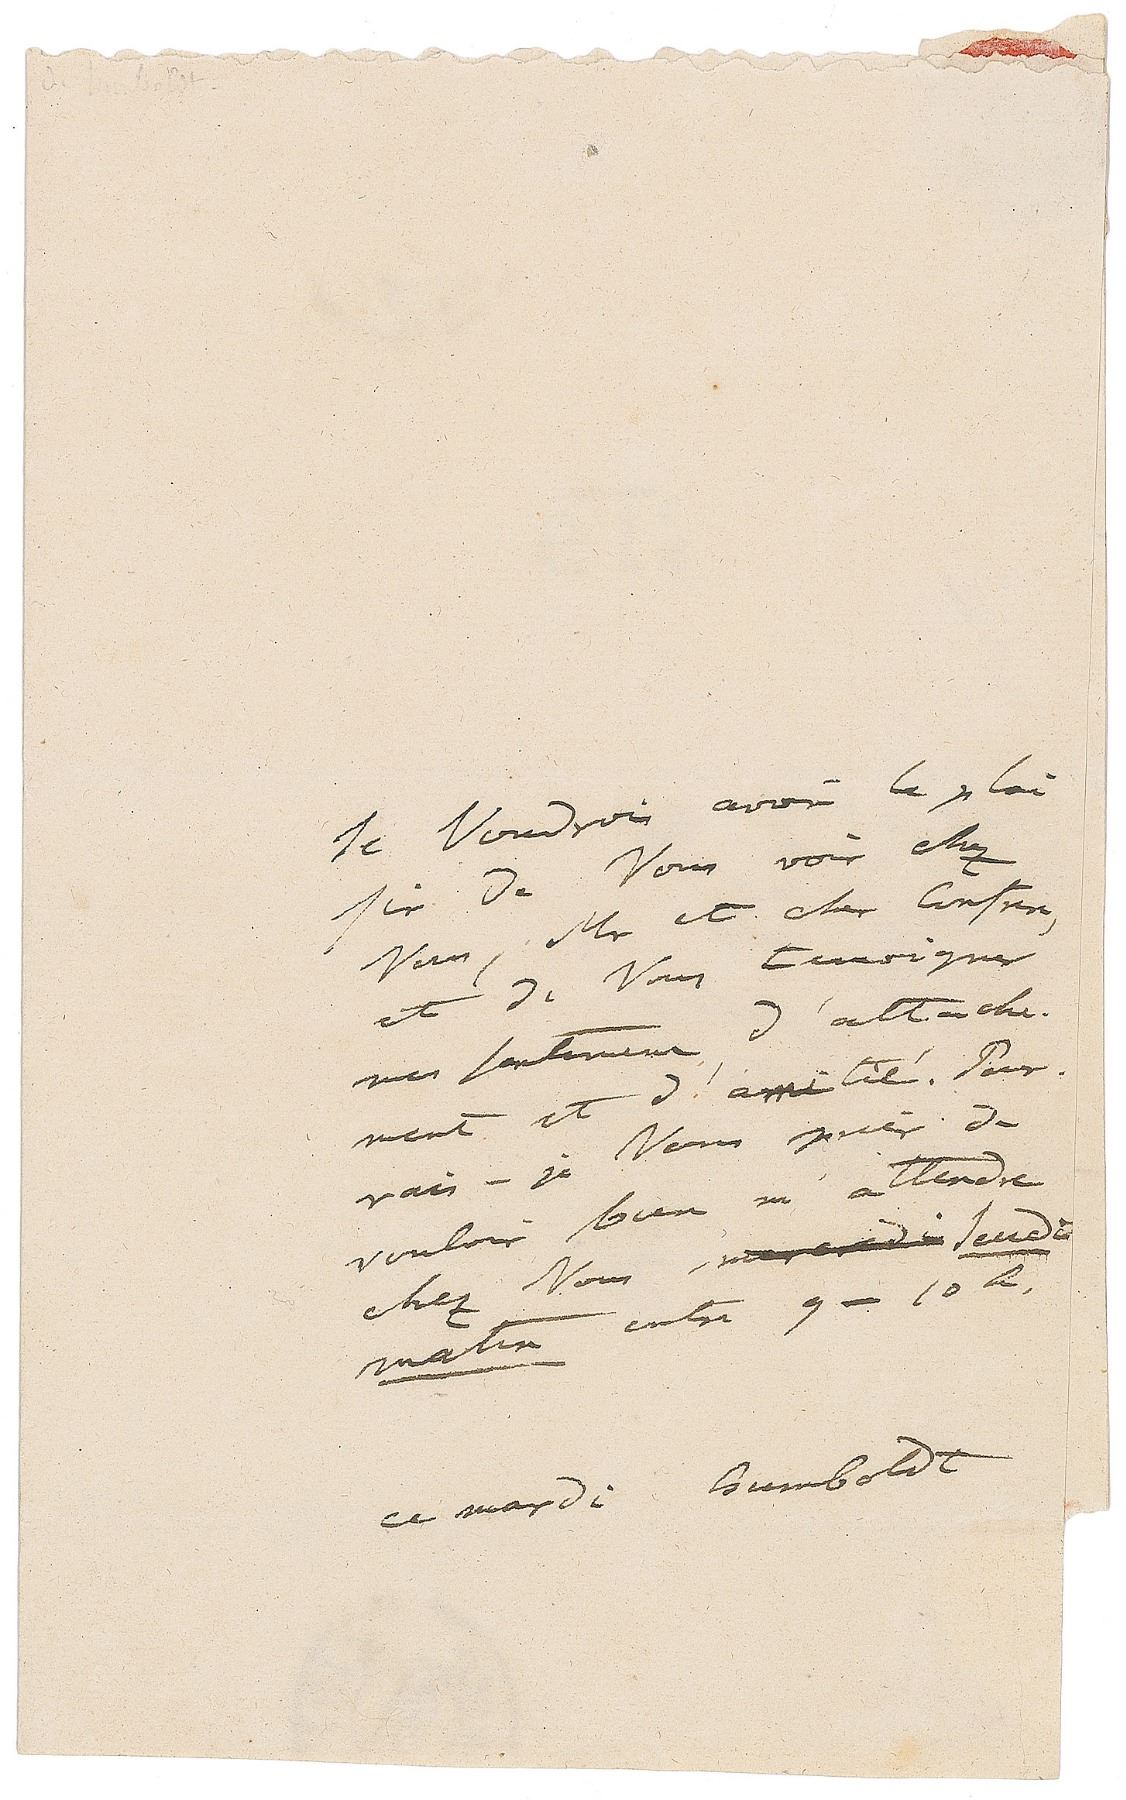 de Humboldt
Je Voudrois avoir le plai
sir de Vous voir chez
Vous, Mr et cher Confrere,
et de Vous temoigner
mes sentimens d'attache-
ment et d'amitié. Pour-
rais-je Vous prier de
vouloir bien m'attendre
chez Vous mercredi Jeudi
matin entre 9 – 10 h.
ce mardi Humboldt